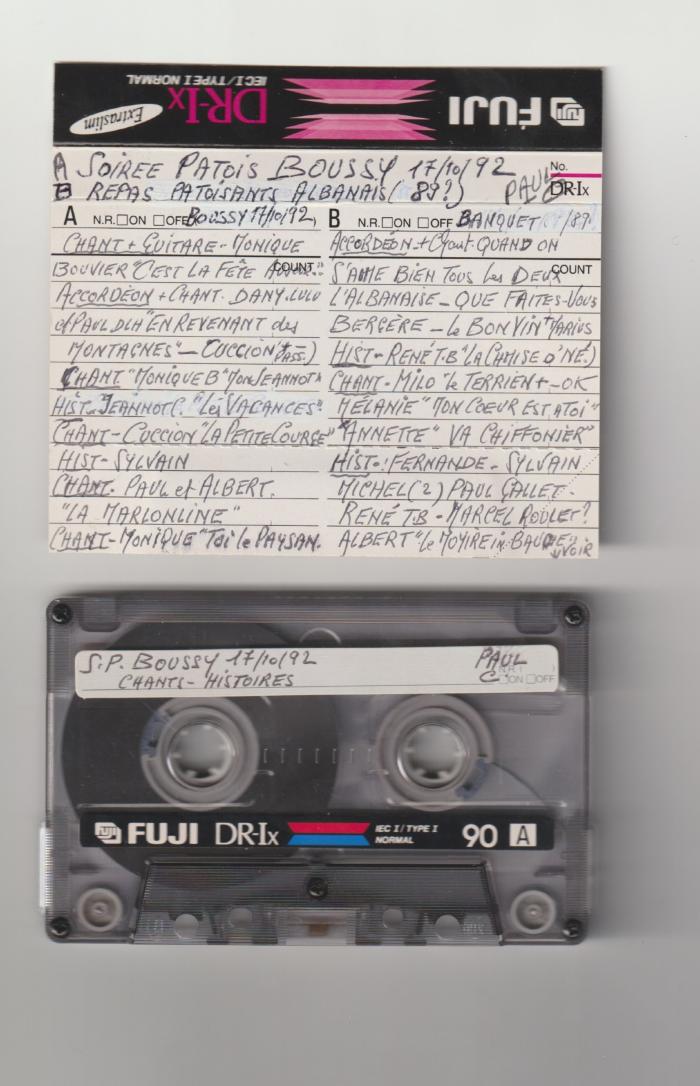 IEC I / TYPE I NORMAL
DR-Ix
Extraslim
FUJI
A SOIREE PATOIS BOUSSY 17/10/92
No.
B REPAS PATOISANTS ALBANAIS (89?) PAUL
DR-Ix
A N.R. □ON □OFF BOUSSY 17/10/92
CHANT + GUITARE - MONIQUE
COUNT
BOUVIER "C'EST LA FÊTE
ACCORDÉON + CHANT. DANY. LULU
et PAUL DLA "EN REVENANT des
MONTAGNES" - CUCCION
CHANT "MONIQUE B" JEANNOT"
HIST. JEANNOT C. "LES VACANCES".
CHANT - CUCCION "LA PETITE COURSE"
HIST - SYLVAIN
CHANT. PAUL et ALBERT.
"LA MARLONLINE"
CHANT - MONIQUE "Toi le PAYSAN.
B N.R. □ON □OFF BANQUET /89?
ACCORDÉON + Chant QUAND ON
COUNT
S'AIME BIEN TOUS Les DEUX
L'ALBANAISE - QUE FAITES-VOUS
BERGÈRE - Le BON VIN + MARIUS
HIST - RENÉ T.B "LA CHMISE D'NÉ.)
CHANT - MILO "le TERRIEN + - OK
MÉLANIE "MON COEUR EST A TOI"
"ANNETTE" VA CHIFFONIER"
HIST - : FERNANDE - SYLVAIN
MICHEL (2) PAUL GALLET -
RENÉ T.B - MARCEL ROULET?
ALBERT "le
S.P. BOUSSY 17/10/92 PAUL
CHANTS - HISTOIRES C.
□ON □OFF
FUJI DR-Ix IEC I / TYPE I
NORMAL
90 A